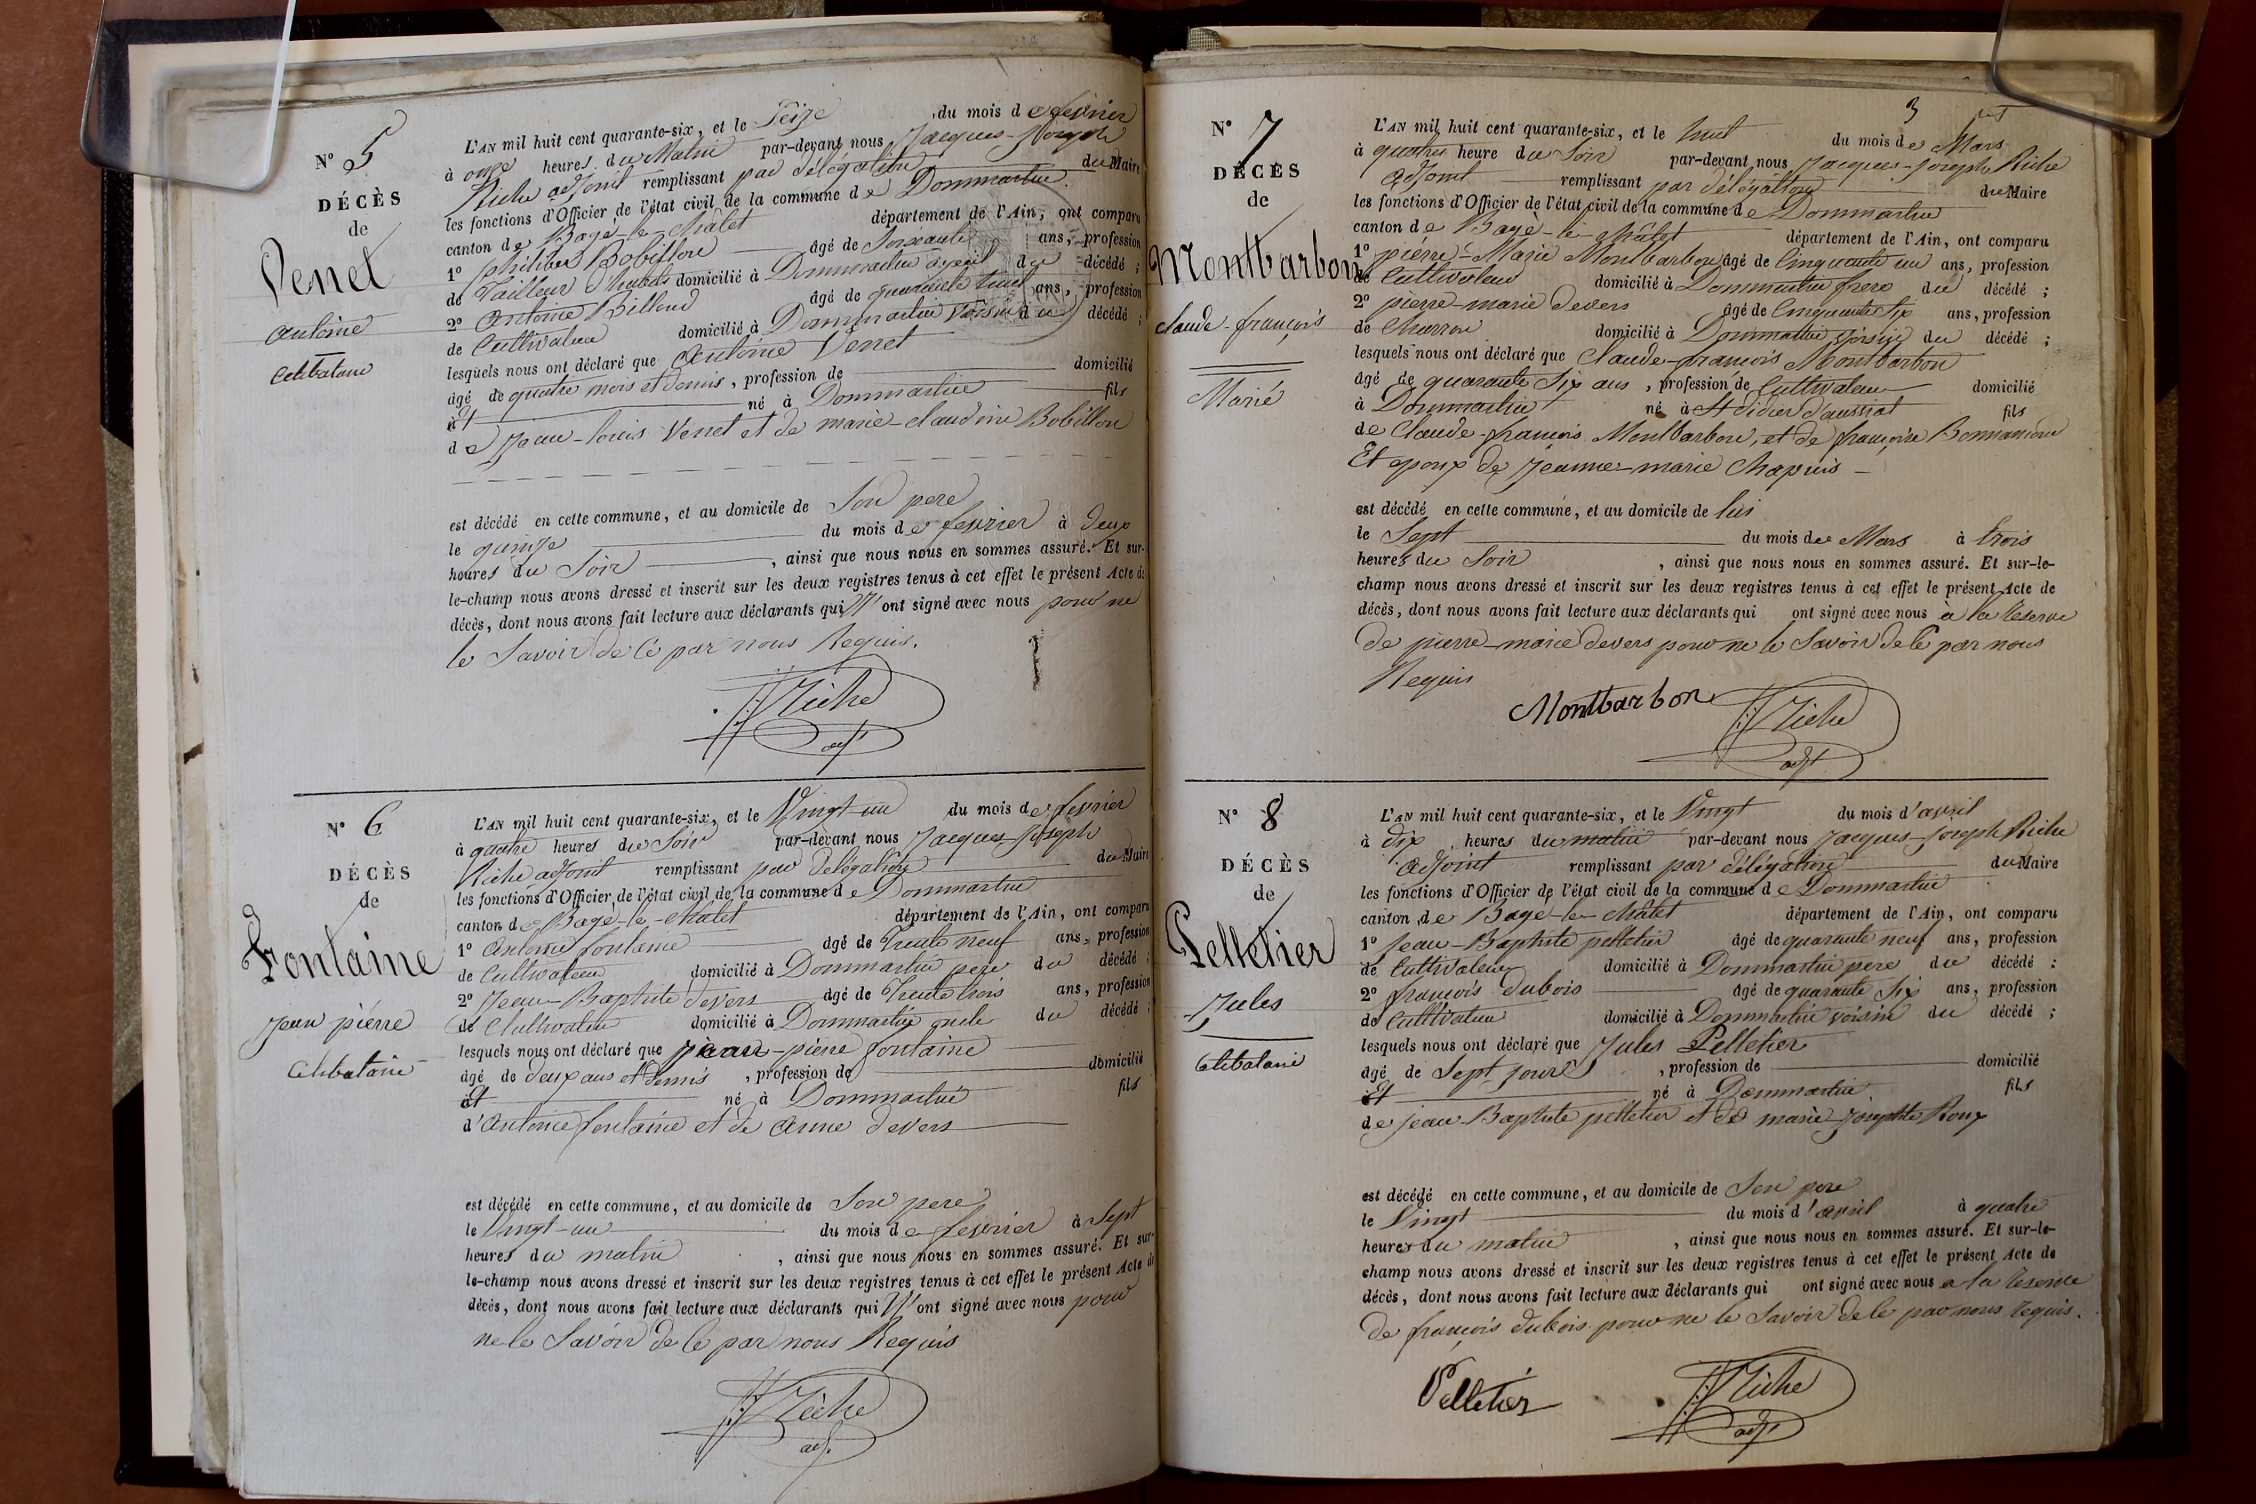 N° 5
DÉCÈS
de
Venet
antoine
Celibataire
L'AN mil huit cent quarante-six, et le Seize du mois de fevrier
à onze heures du Matin par-devant nous Jacques-Joseph
Riche adjoint remplissant par délégation du Maire
les fonctions d'Officier de l'état civil de la commune de Dommartin
canton de Bagé-le-Châtel département de l'Ain, ont comparu
1° philibert Bobillon âgé de Soixante ans, profession
de Tailleur d'habits domicilié à Dommartin ayeul du décédé ;
2° antoine Billoud âgé de ans, profession
de Cultivateur domicilié à Dommartin Voisin du décédé ;
lesquels nous ont déclaré que antoine Venet
âgé de quatre mois et demis, profession de domicilié
Et né à Dommartin fils
de Jean-louis Venet et de marie-claudine Bobillon
est décédé en cette commune, et au domicile de Son pere
le quinze du mois de fevrier à deux
heures du Soir, ainsi que nous nous en sommes assuré. Et sur-
le-champ nous avons dressé et inscrit sur les deux registres tenus à cet effet le présent Acte de
décès, dont nous avons fait lecture aux déclarants qui N'ont signé avec nous pour ne
le Savoir de Ce par nous Requis.
Riche
adj.
N° 6
DÉCÈS
de
Fontaine
Jean pierre
Celibataire
L'AN mil huit cent quarante-six, et le Vingt-un du mois de fevrier
à quatre heures du Soir par-devant nous Jacques-Joseph
Riche adjoint remplissant par délégation du Maire
les fonctions d'Officier de l'état civil de la commune de Dommartin
canton de Bagé-le-Chatel département de l'Ain, ont comparu
1° antoine fontaine âgé de Trente neuf ans, profession
de Cultivateur domicilié à Dommartin pere du décédé ;
2° Jean-Baptiste devers âgé de Trente trois ans, profession
de Cultivateur domicilié à Dommartin oncle du décédé ;
lesquels nous ont déclaré que jean-pierre fontaine
âgé de deux ans et demis, profession de domicilié
Et né à Dommartin fils
d'antoine fontaine et de anne devers
est décédé en cette commune, et au domicile de Son pere
le Vingt-un du mois de fevrier à Sept
heures du matin, ainsi que nous nous en sommes assuré. Et sur-
le-champ nous avons dressé et inscrit sur les deux registres tenus à cet effet le présent Acte de
décès, dont nous avons fait lecture aux déclarants qui N'ont signé avec nous pour
ne le Savoir de Ce par nous Requis
Riche
adj.
3
N° 7
DÉCÈS
de
Montbarbon
claude-françois
Marié
L'AN mil huit cent quarante-six, et le huit du mois de Mars
à quatre heure du Soir par-devant nous Jacques-Joseph Riche
adjoint remplissant par délégation du Maire
les fonctions d'Officier de l'état civil de la commune de Dommartin
canton de Bagé-le-Châtel département de l'Ain, ont comparu
1° pierre-Marie Montbarbon âgé de Cinquante un ans, profession
de Cultivateur domicilié à Dommartin frere du décédé ;
2° pierre-marie devers âgé de Cinquante Six ans, profession
de Charron domicilié à Dommartin voisin du décédé ;
lesquels nous ont déclaré que Claude-françois Montbarbon
âgé de quarante Six ans, profession de Cultivateur domicilié
à Dommartin né à St didier d'aussiat fils
de Claude-françois Montbarbon, et de françoise
Et epoux de Jeanne-marie Chapuis
est décédé en cette commune, et au domicile de lui
le Sept du mois de Mars à trois
heures du Soir, ainsi que nous nous en sommes assuré. Et sur-le-
champ nous avons dressé et inscrit sur les deux registres tenus à cet effet le présent Acte de
décès, dont nous avons fait lecture aux déclarants qui ont signé avec nous à la reserve
de pierre-marie devers pour ne le Savoir de Ce par nous
Requis
Montbarbon Riche
adj.
N° 8
DÉCÈS
de
Pelletier
Jules
Celibataire
L'AN mil huit cent quarante-six, et le Vingt du mois d'avril
à dix heures du matin par-devant nous Jacques-Joseph Riche
adjoint remplissant par délégation du Maire
les fonctions d'Officier de l'état civil de la commune de Dommartin
canton de Bagé-le-Châtel département de l'Ain, ont comparu
1° Jean-Baptiste pelletier âgé de quarante neuf ans, profession
de Cultivateur domicilié à Dommartin pere du décédé ;
2° françois Dubois âgé de quarante Six ans, profession
de Cultivateur domicilié à Dommartin voisin du décédé ;
lesquels nous ont déclaré que Jules Pelletier
âgé de Sept jours, profession de domicilié
Et né à Dommartin fils
de jean-Baptiste pelletier et de marie-Josephte Roux
est décédé en cette commune, et au domicile de Son pere
le Vingt du mois d'avril à quatre
heures du matin, ainsi que nous nous en sommes assuré. Et sur-le-
champ nous avons dressé et inscrit sur les deux registres tenus à cet effet le présent Acte de
décès, dont nous avons fait lecture aux déclarants qui ont signé avec nous a la reserve
de françois dubois pour ne le Savoir de Ce par nous requis.
Pelletier Riche
adj.